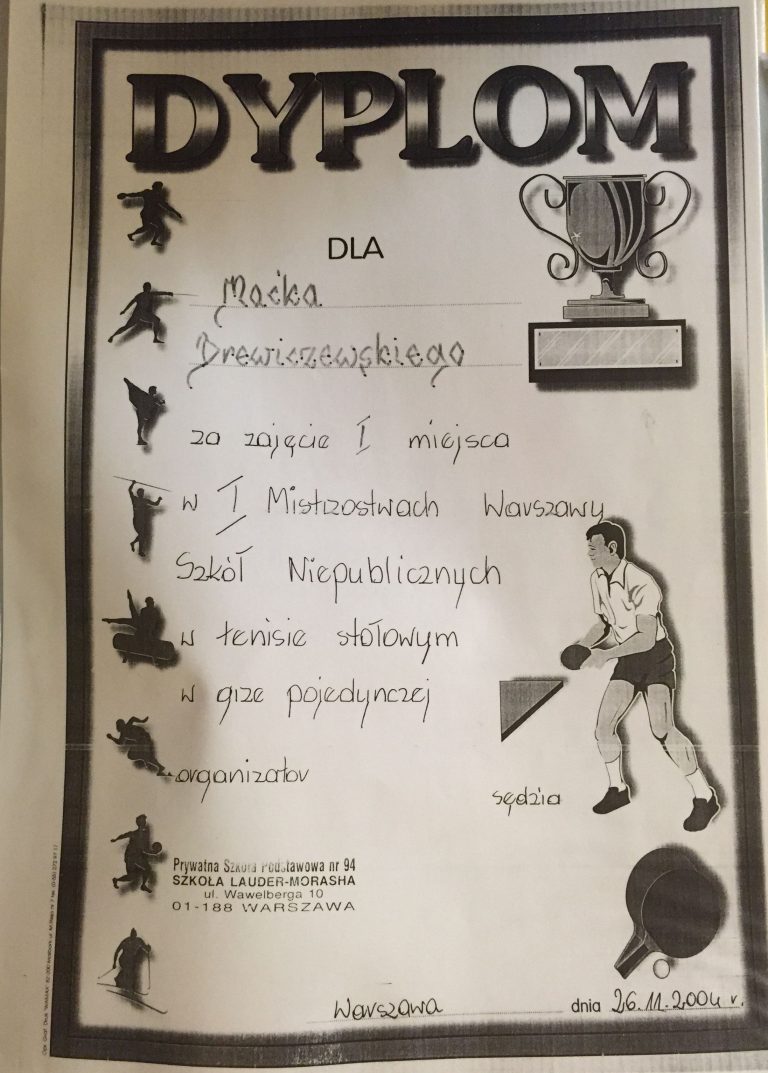 DYPLOM
DLA
Maćka
Drewiczewskiego
za zajęcie I miejsca
w I Mistrzostwach Warszawy
Szkół Niepublicznych
w tenisie stołowym
w grze pojedynczej
organizator
sędzia
Prywatna Szkoła Podstawowa nr 94
SZKOŁA LAUDER-MORASHA
ul. Wawelberga 10
01-188 WARSZAWA
Warszawa dnia 26.11.2004 r.